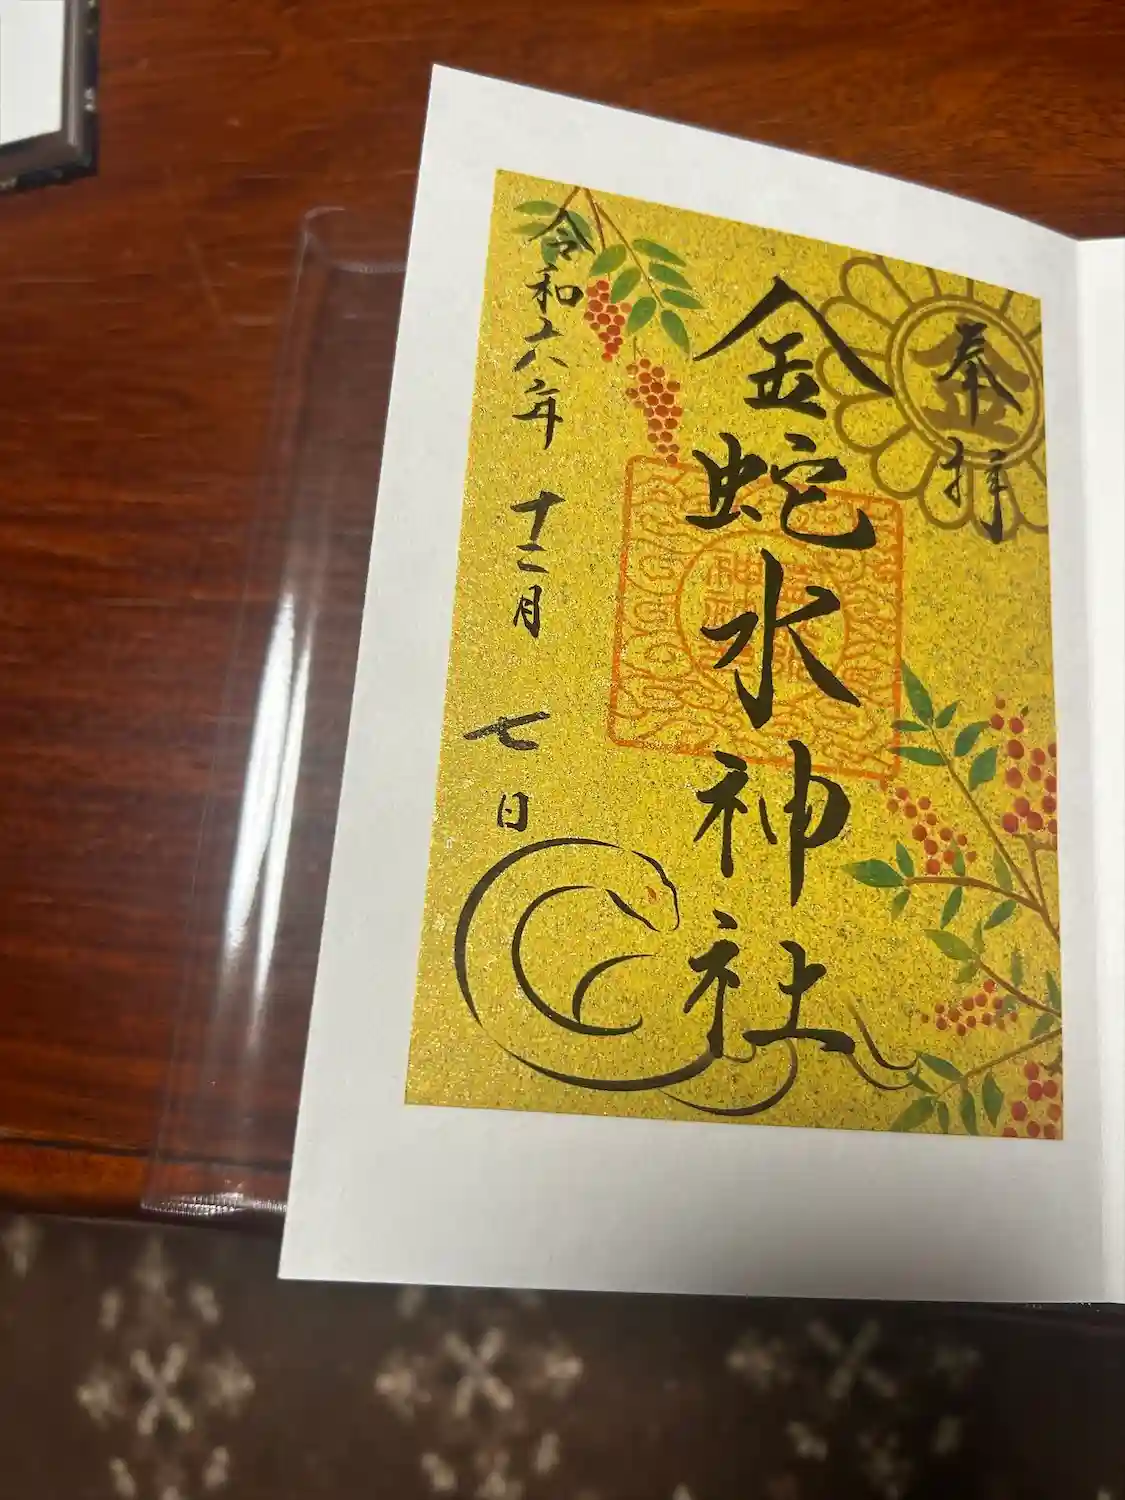 奉拝
金蛇水神社
令和六年 十二月 七日
金